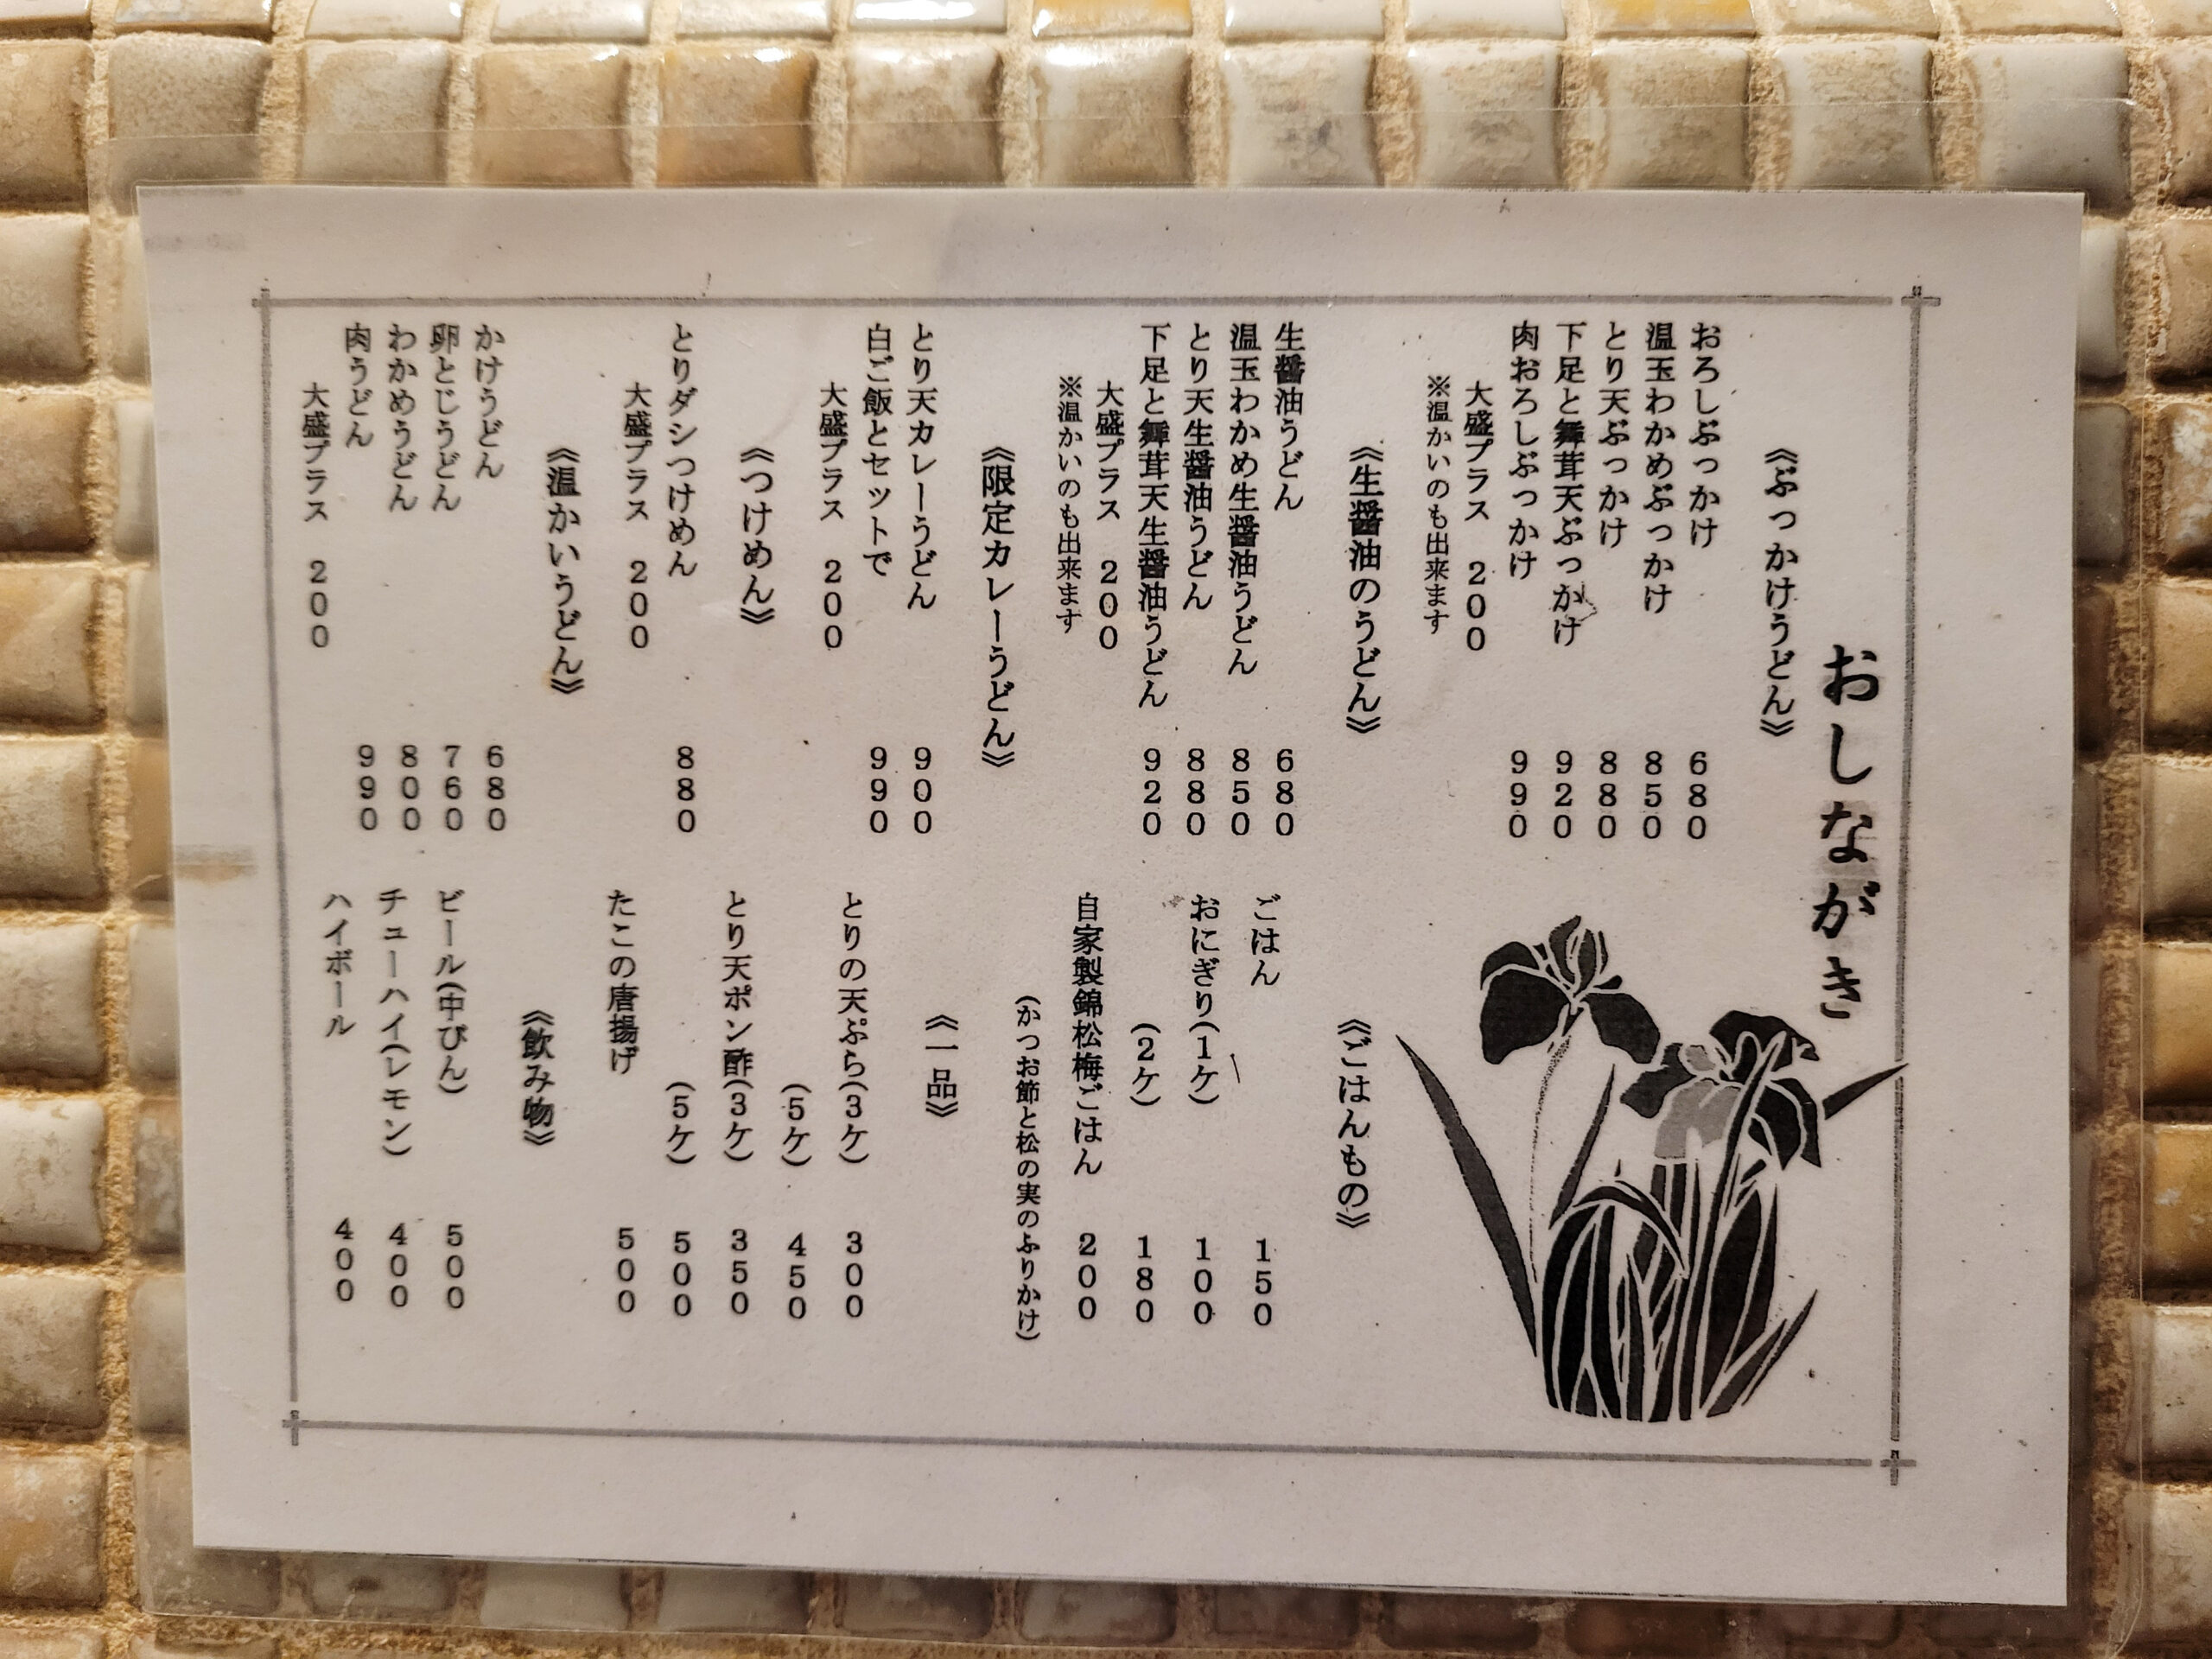 おしながき
《ぶっかけうどん》
おろしぶっかけ 680
温玉わかめぶっかけ 850
とり天ぶっかけ 880
下足と舞茸天ぶっかけ 920
肉おろしぶっかけ 990
大盛プラス 200
※温かいのも出来ます
《生醤油のうどん》
生醤油うどん 680
温玉わかめ生醤油うどん 850
とり天生醤油うどん 880
下足と舞茸天生醤油うどん 920
大盛プラス 200
※温かいのも出来ます
《限定カレーうどん》
とり天カレーうどん 900
白ご飯とセットで 990
大盛プラス 200
《つけめん》
とりダシつけめん 880
大盛プラス 200
《温かいうどん》
かけうどん 680
卵とじうどん 760
わかめうどん 800
肉うどん 990
大盛プラス 200
《ごはんもの》
ごはん 150
おにぎり(1ケ) 100
(2ケ) 180
自家製錦松梅ごはん 200
(かつお節と松の実のふりかけ)
《一品》
とりの天ぷら(3ケ) 300
(5ケ) 450
とり天ポン酢(3ケ) 350
(5ケ) 500
たこの唐揚げ 500
《飲み物》
ビール(中びん) 500
チューハイ(レモン) 400
ハイボール 400